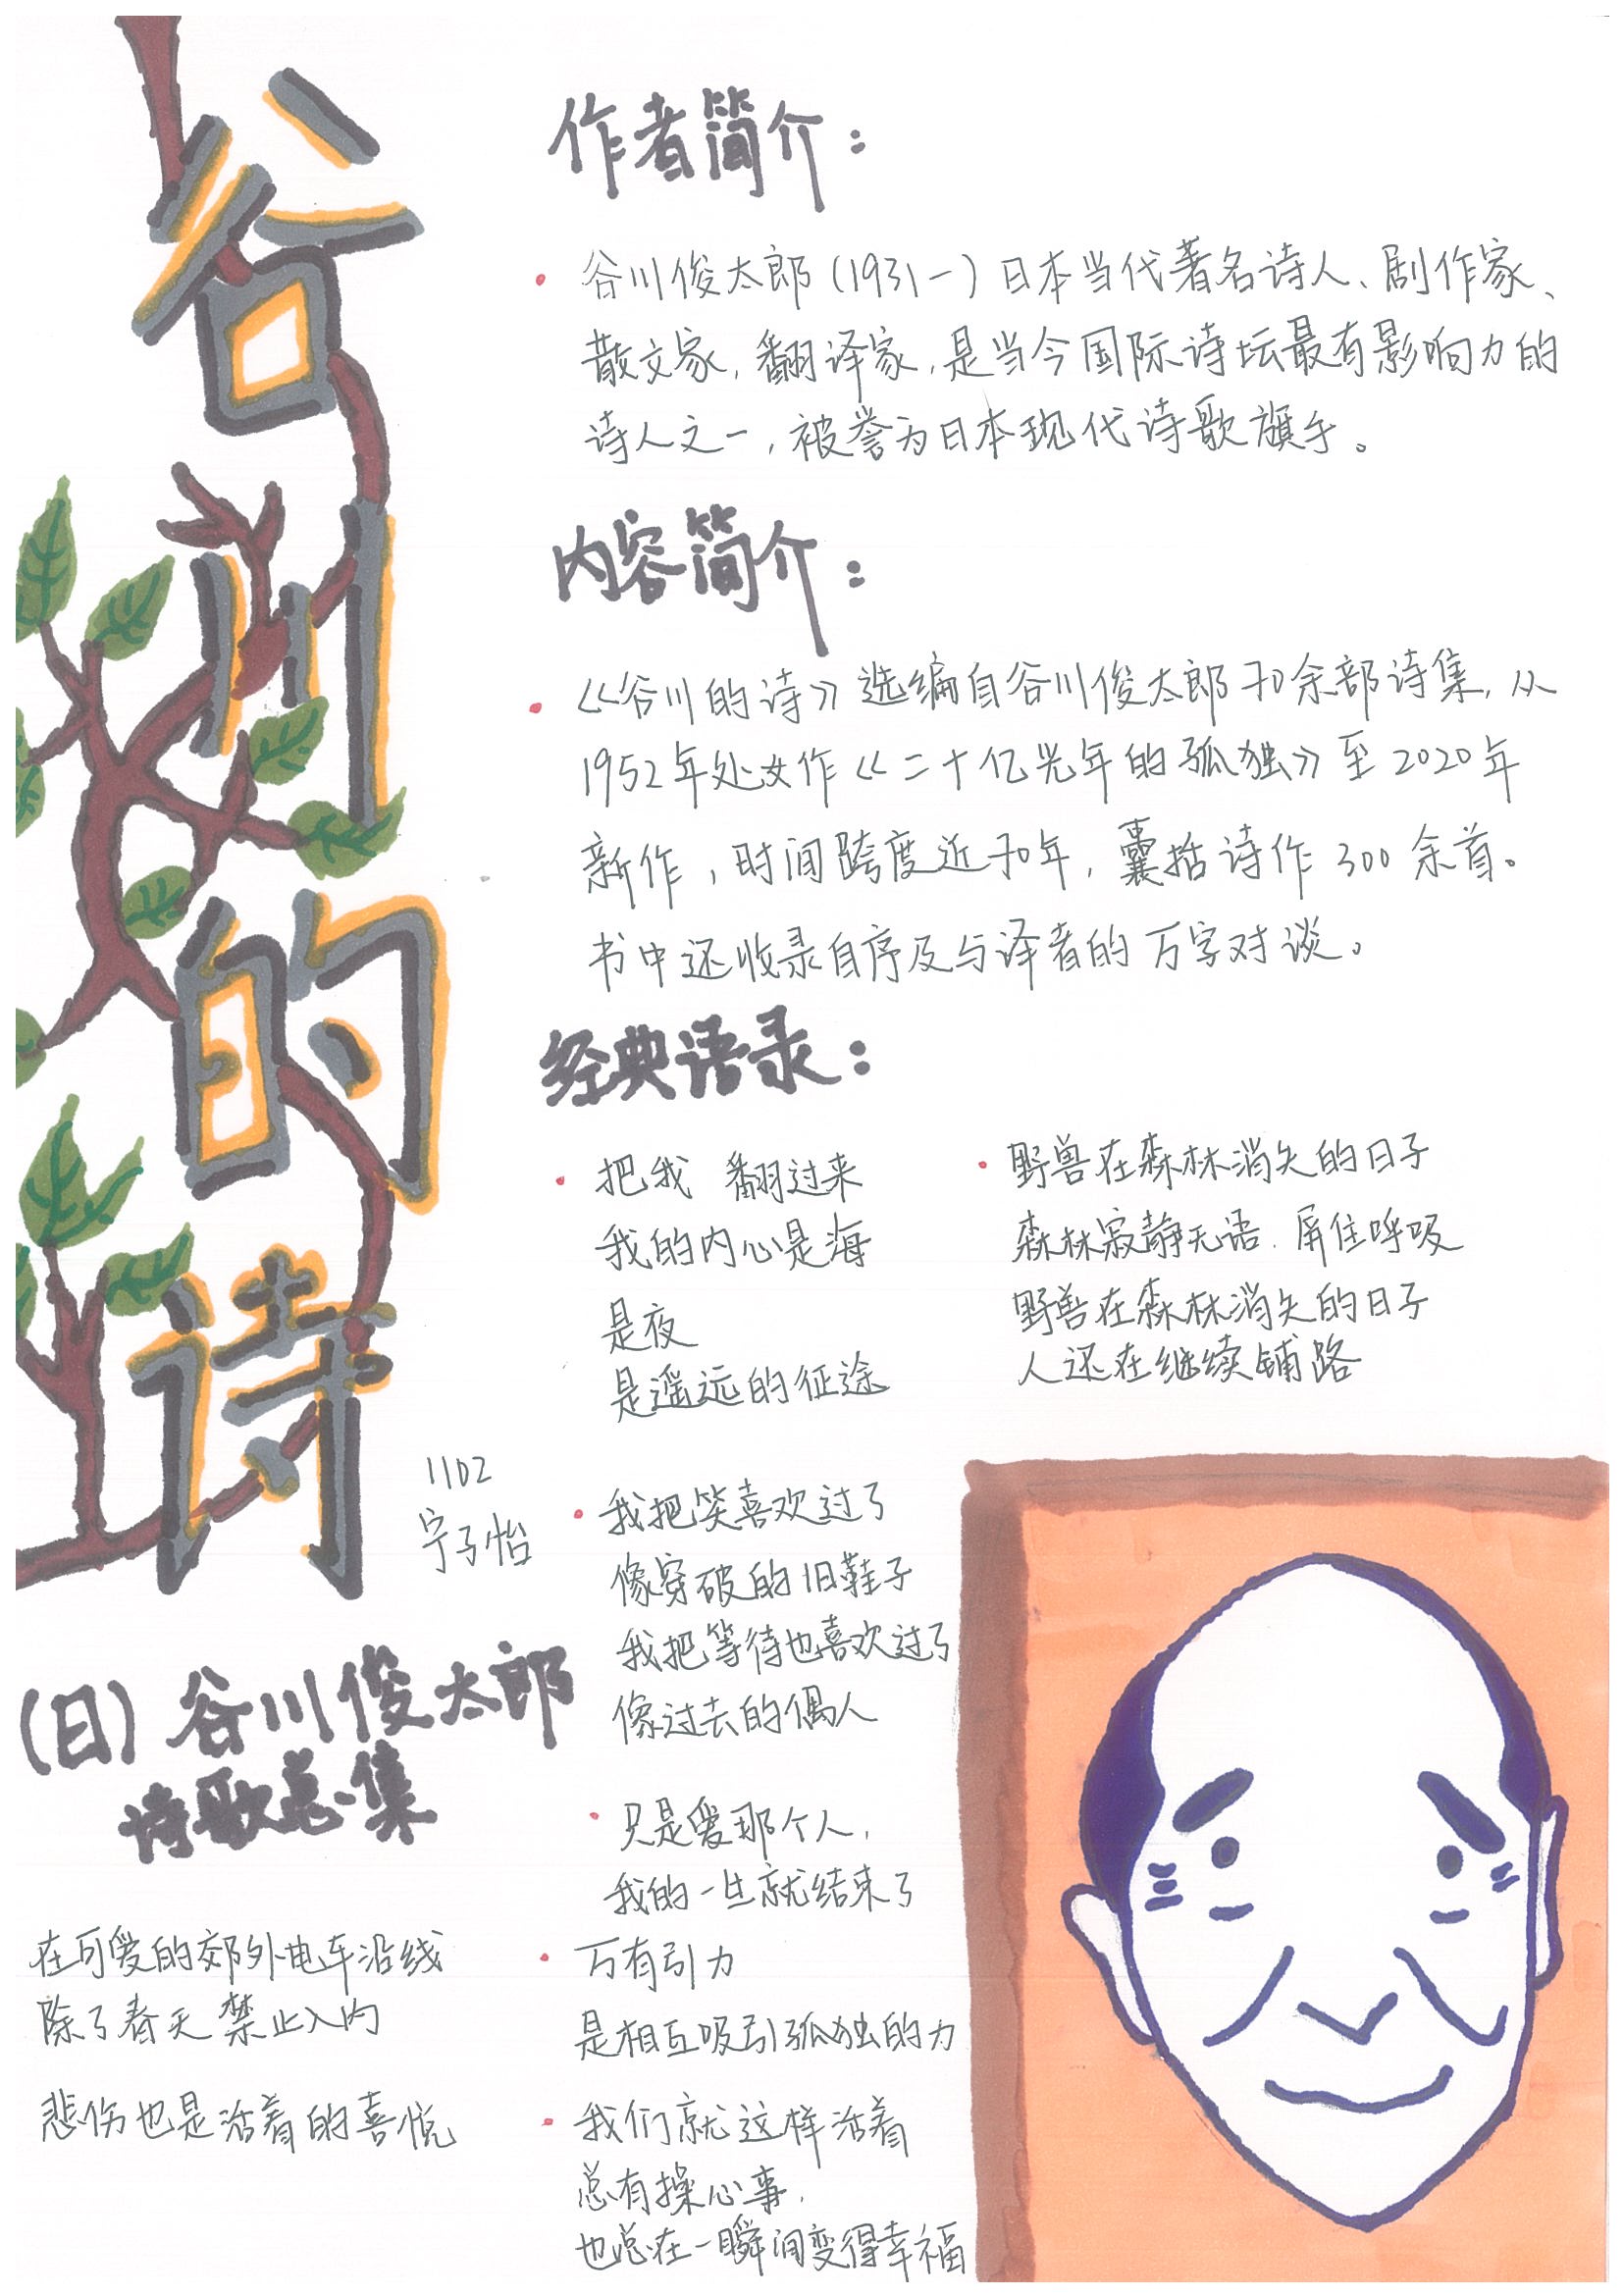 谷川的诗
作者简介：
谷川俊太郎（1931—）日本当代著名诗人、剧作家、
散文家，翻译家，是当今国际诗坛最有影响力的
诗人之一，被誉为日本现代诗歌旗手。
内容简介：
《谷川的诗》选编自谷川俊太郎70余部诗集，从
1952年处女作《二十亿光年的孤独》至2020年
新作，时间跨度近70年，囊括诗作300余首。
书中还收录自序及与译者的万字对谈。
经典语录：
把我 翻过来
我的内心是海
是夜
是遥远的征途
野兽在森林消失的日子
森林寂静无语．屏住呼吸
野兽在森林消失的日子
人还在继续铺路
我把笑喜欢过了
像穿破的旧鞋子
我把等待也喜欢过了
像过去的偶人
只是爱那个人，
我的一生就结束了
万有引力
是相互吸引孤独的力
我们就这样活着
总有操心事，
也总在一瞬间变得幸福
1102
宁子怡
（日）谷川俊太郎
诗歌总集
在可爱的郊外电车沿线
除了春天 禁止入内
悲伤也是活着的喜悦